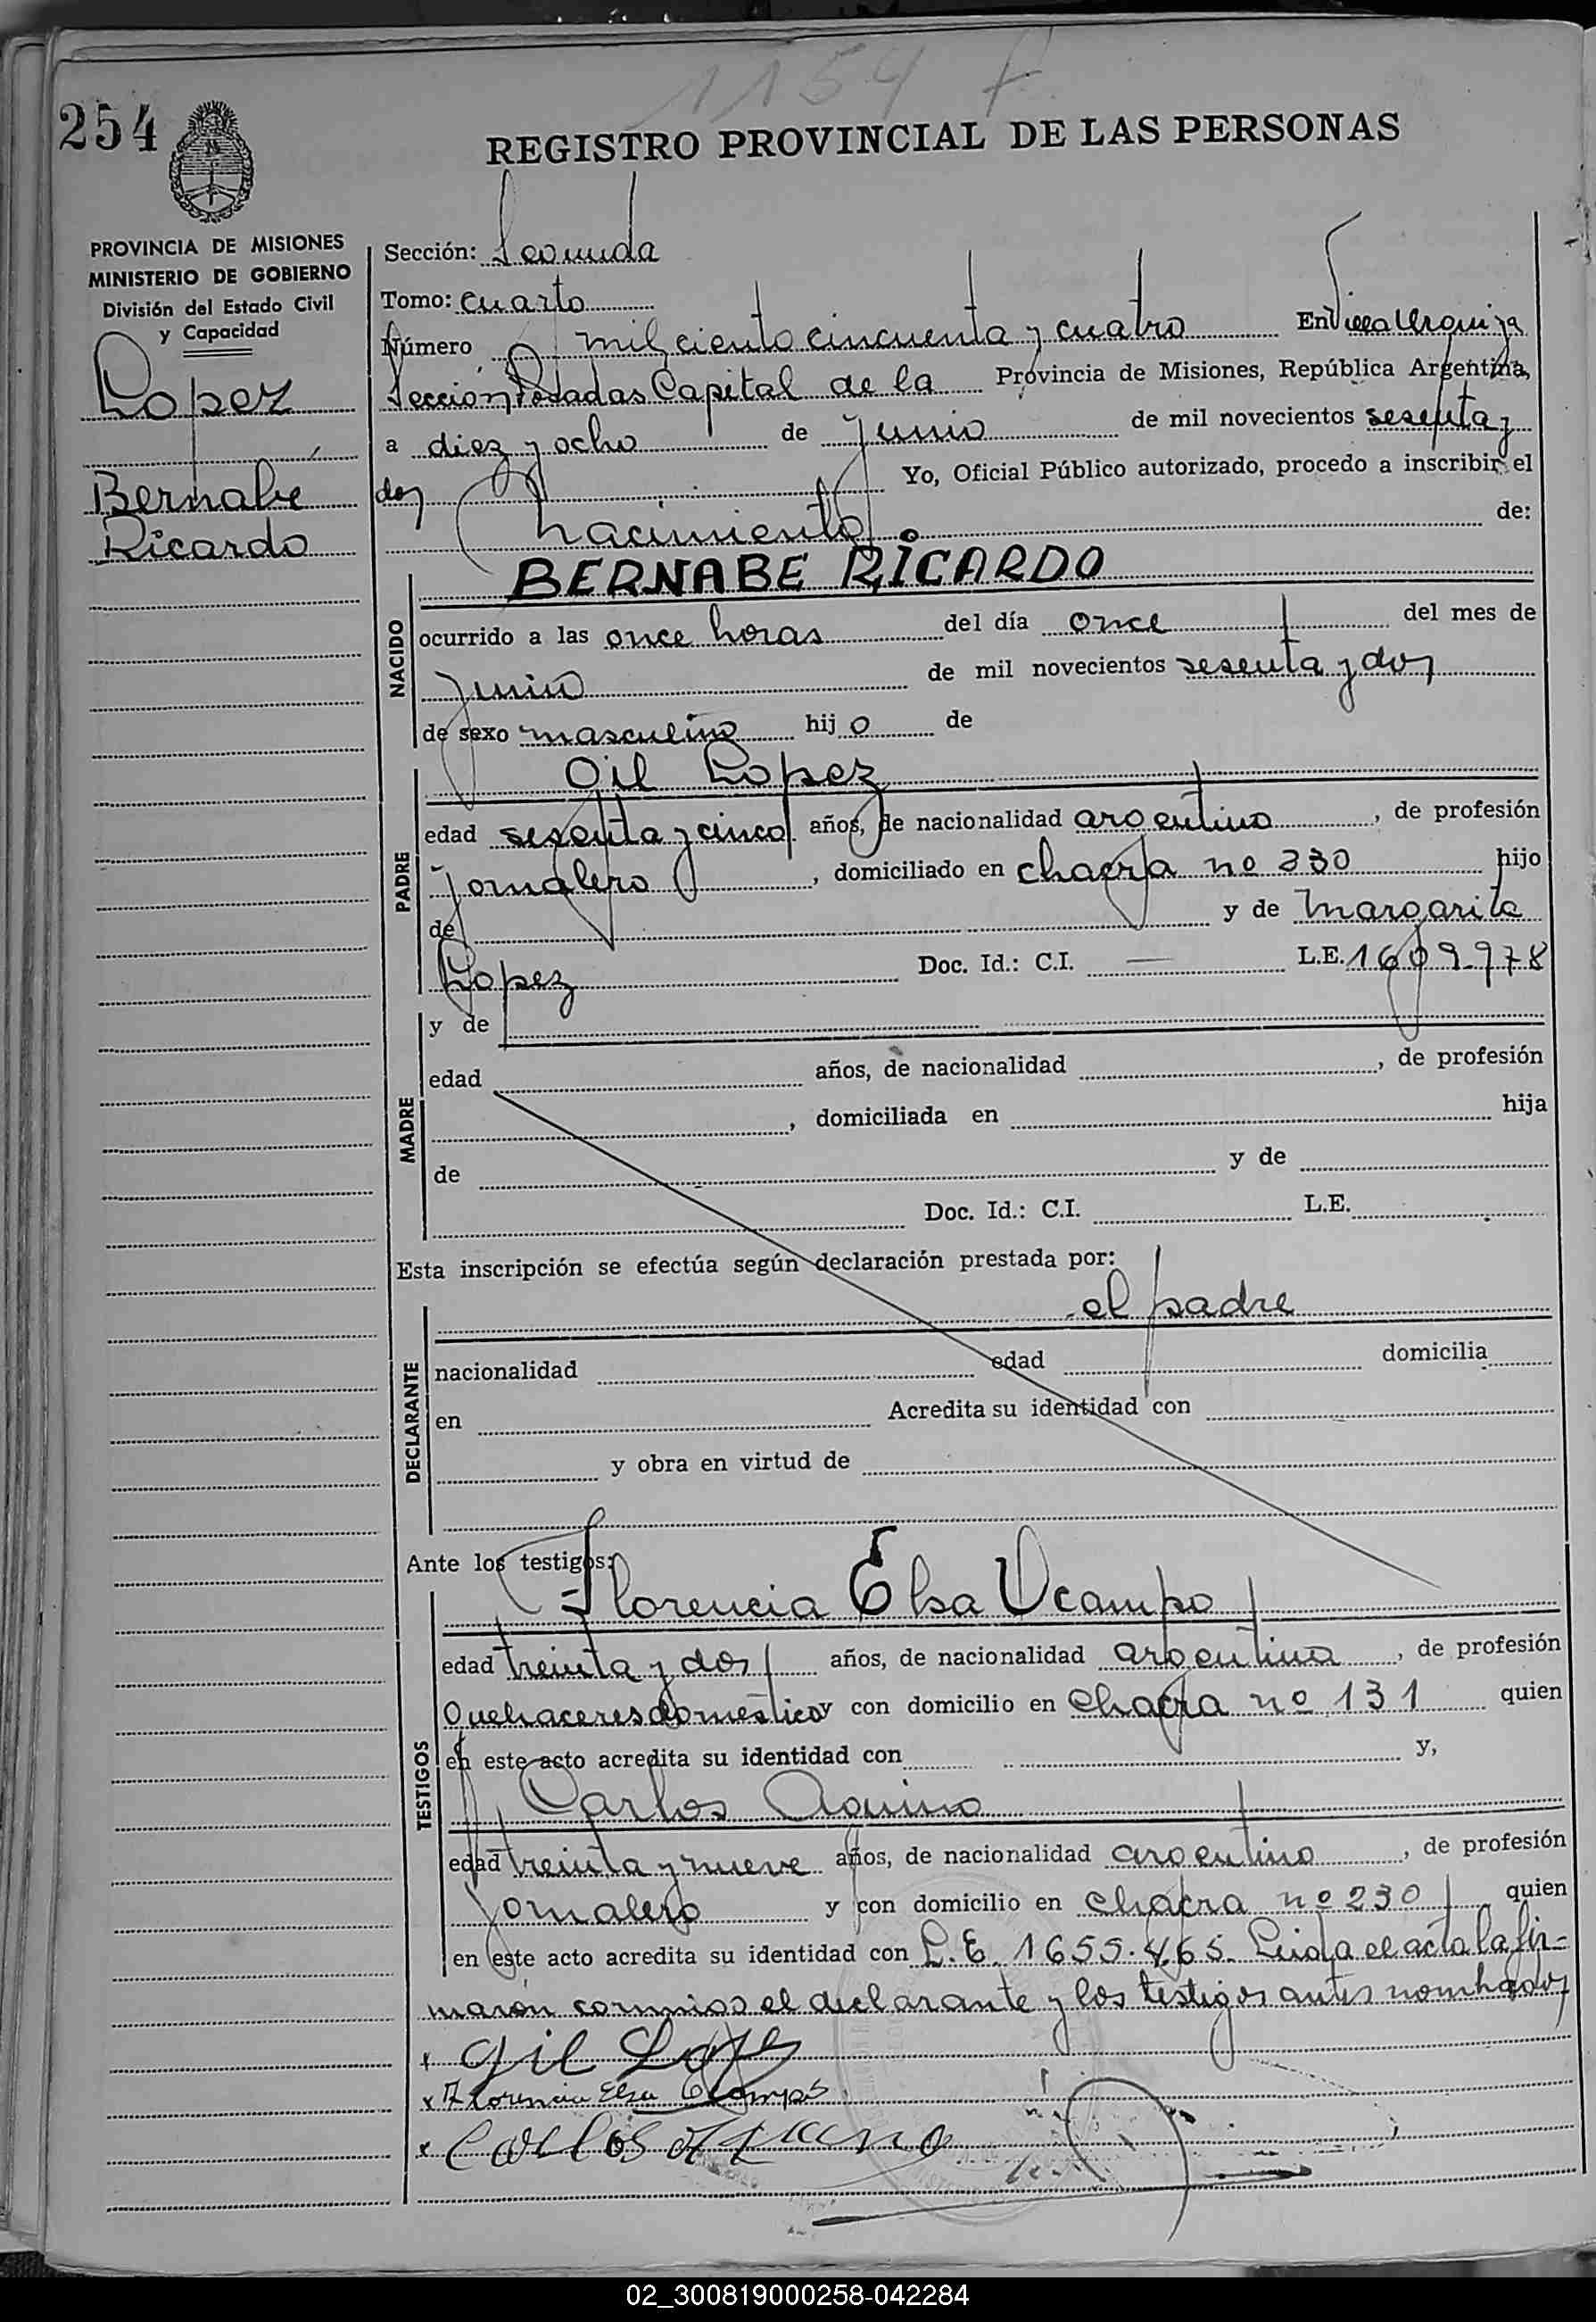 1154
254
REGISTRO PROVINCIAL DE LAS PERSONAS
PROVINCIA DE MISIONES
MINISTERIO DE GOBIERNO
División del Estado Civil
y Capacidad
Lopez
Bernabé
Ricardo
Sección: Segunda
Tomo: cuarto
Número mil ciento cincuenta y cuatro En Villa Urquiza
Sección Posadas Capital de la Provincia de Misiones, República Argentina,
a diez y ocho de junio de mil novecientos sesenta y
dos Yo, Oficial Público autorizado, procedo a inscribir el
nacimiento de:
NACIDO
BERNABE RICARDO
ocurrido a las once horas del día once del mes de
junio de mil novecientos sesenta y dos
de sexo masculino hijo de
PADRE
Gil Lopez
edad sesenta y cinco años, de nacionalidad argentino, de profesión
jornalero, domiciliado en chacra nº 330 hijo
de y de Margarita
Lopez Doc. Id.: C.I. — L.E. 1609.978
MADRE
y de
edad años, de nacionalidad , de profesión
, domiciliada en hija
de y de
Doc. Id.: C.I. L.E.
Esta inscripción se efectúa según declaración prestada por:
el padre
DECLARANTE
nacionalidad edad domicilia
en Acredita su identidad con
y obra en virtud de
Ante los testigos:
TESTIGOS
Florencia Elsa Ocampo
edad treinta y dos años, de nacionalidad argentina, de profesión
Quehaceres domésticos y con domicilio en chacra nº 131 quien
en este acto acredita su identidad con y,
Carlos Aquino
edad treinta y nueve años, de nacionalidad argentino, de profesión
jornalero y con domicilio en chacra nº 230 quien
en este acto acredita su identidad con L.E. 1655.465. Leida el acta la fir-
maron conmigo el declarante y los testigos antes nombrados
x Gil Lopez
x Florencia Elsa Ocampos
x Carlos Aquino
02_300819000258-042284